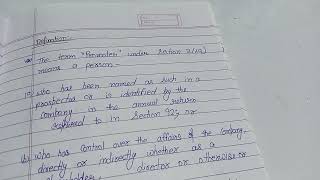 Definition:-
The term "Promoter" under section 2(69)
means a person -
who has been named as such in a
prospectus or is identified by the
company in the annual return
referred to in section 92; or
who has control over the affairs of the company
directly or indirectly whether as a
director or otherwise or